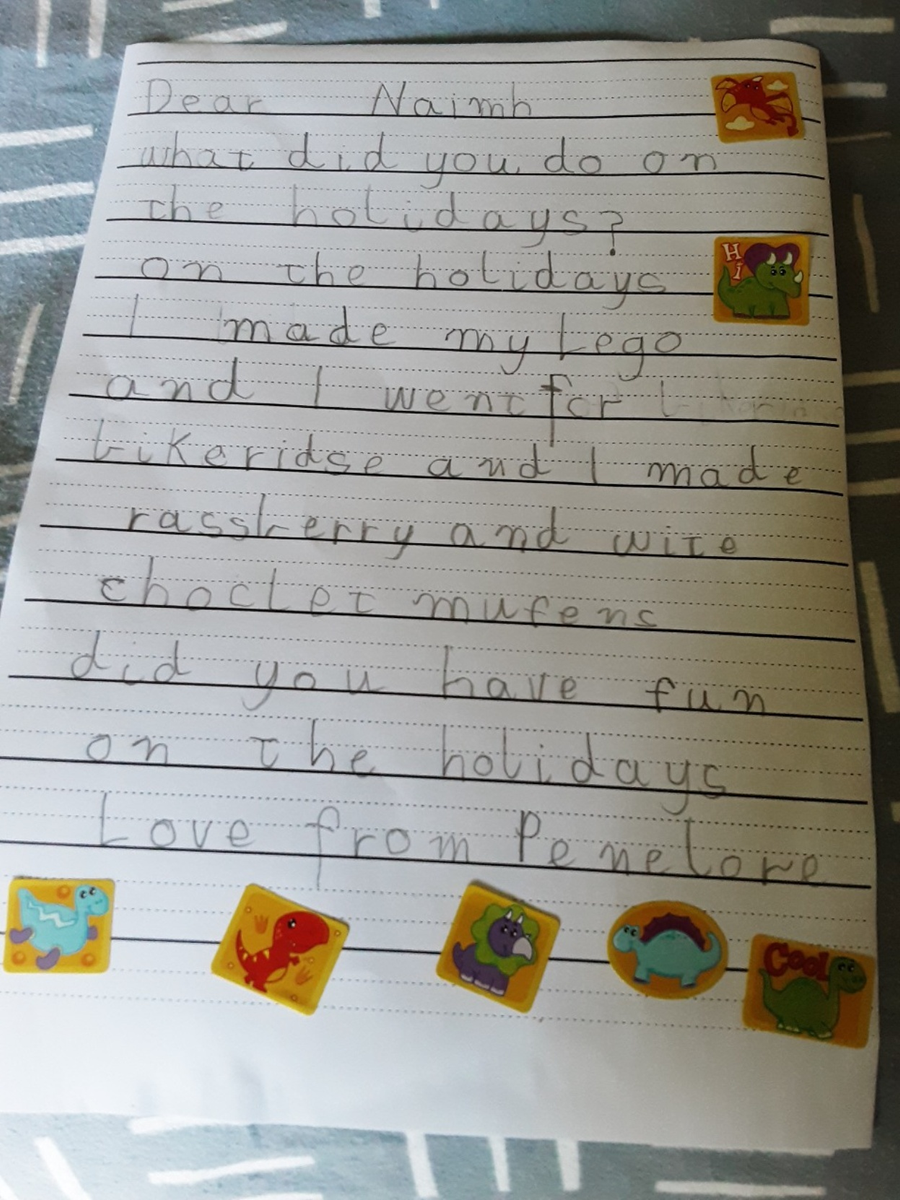 Dear Naimh
what did you do on
the holidays?
Hi
on the holidays
I made my Lego
and I went for
bikeridse and I made
rassberry and wite
choclet mufens
did you have fun
on the holidays
Love from Penelope
COOL